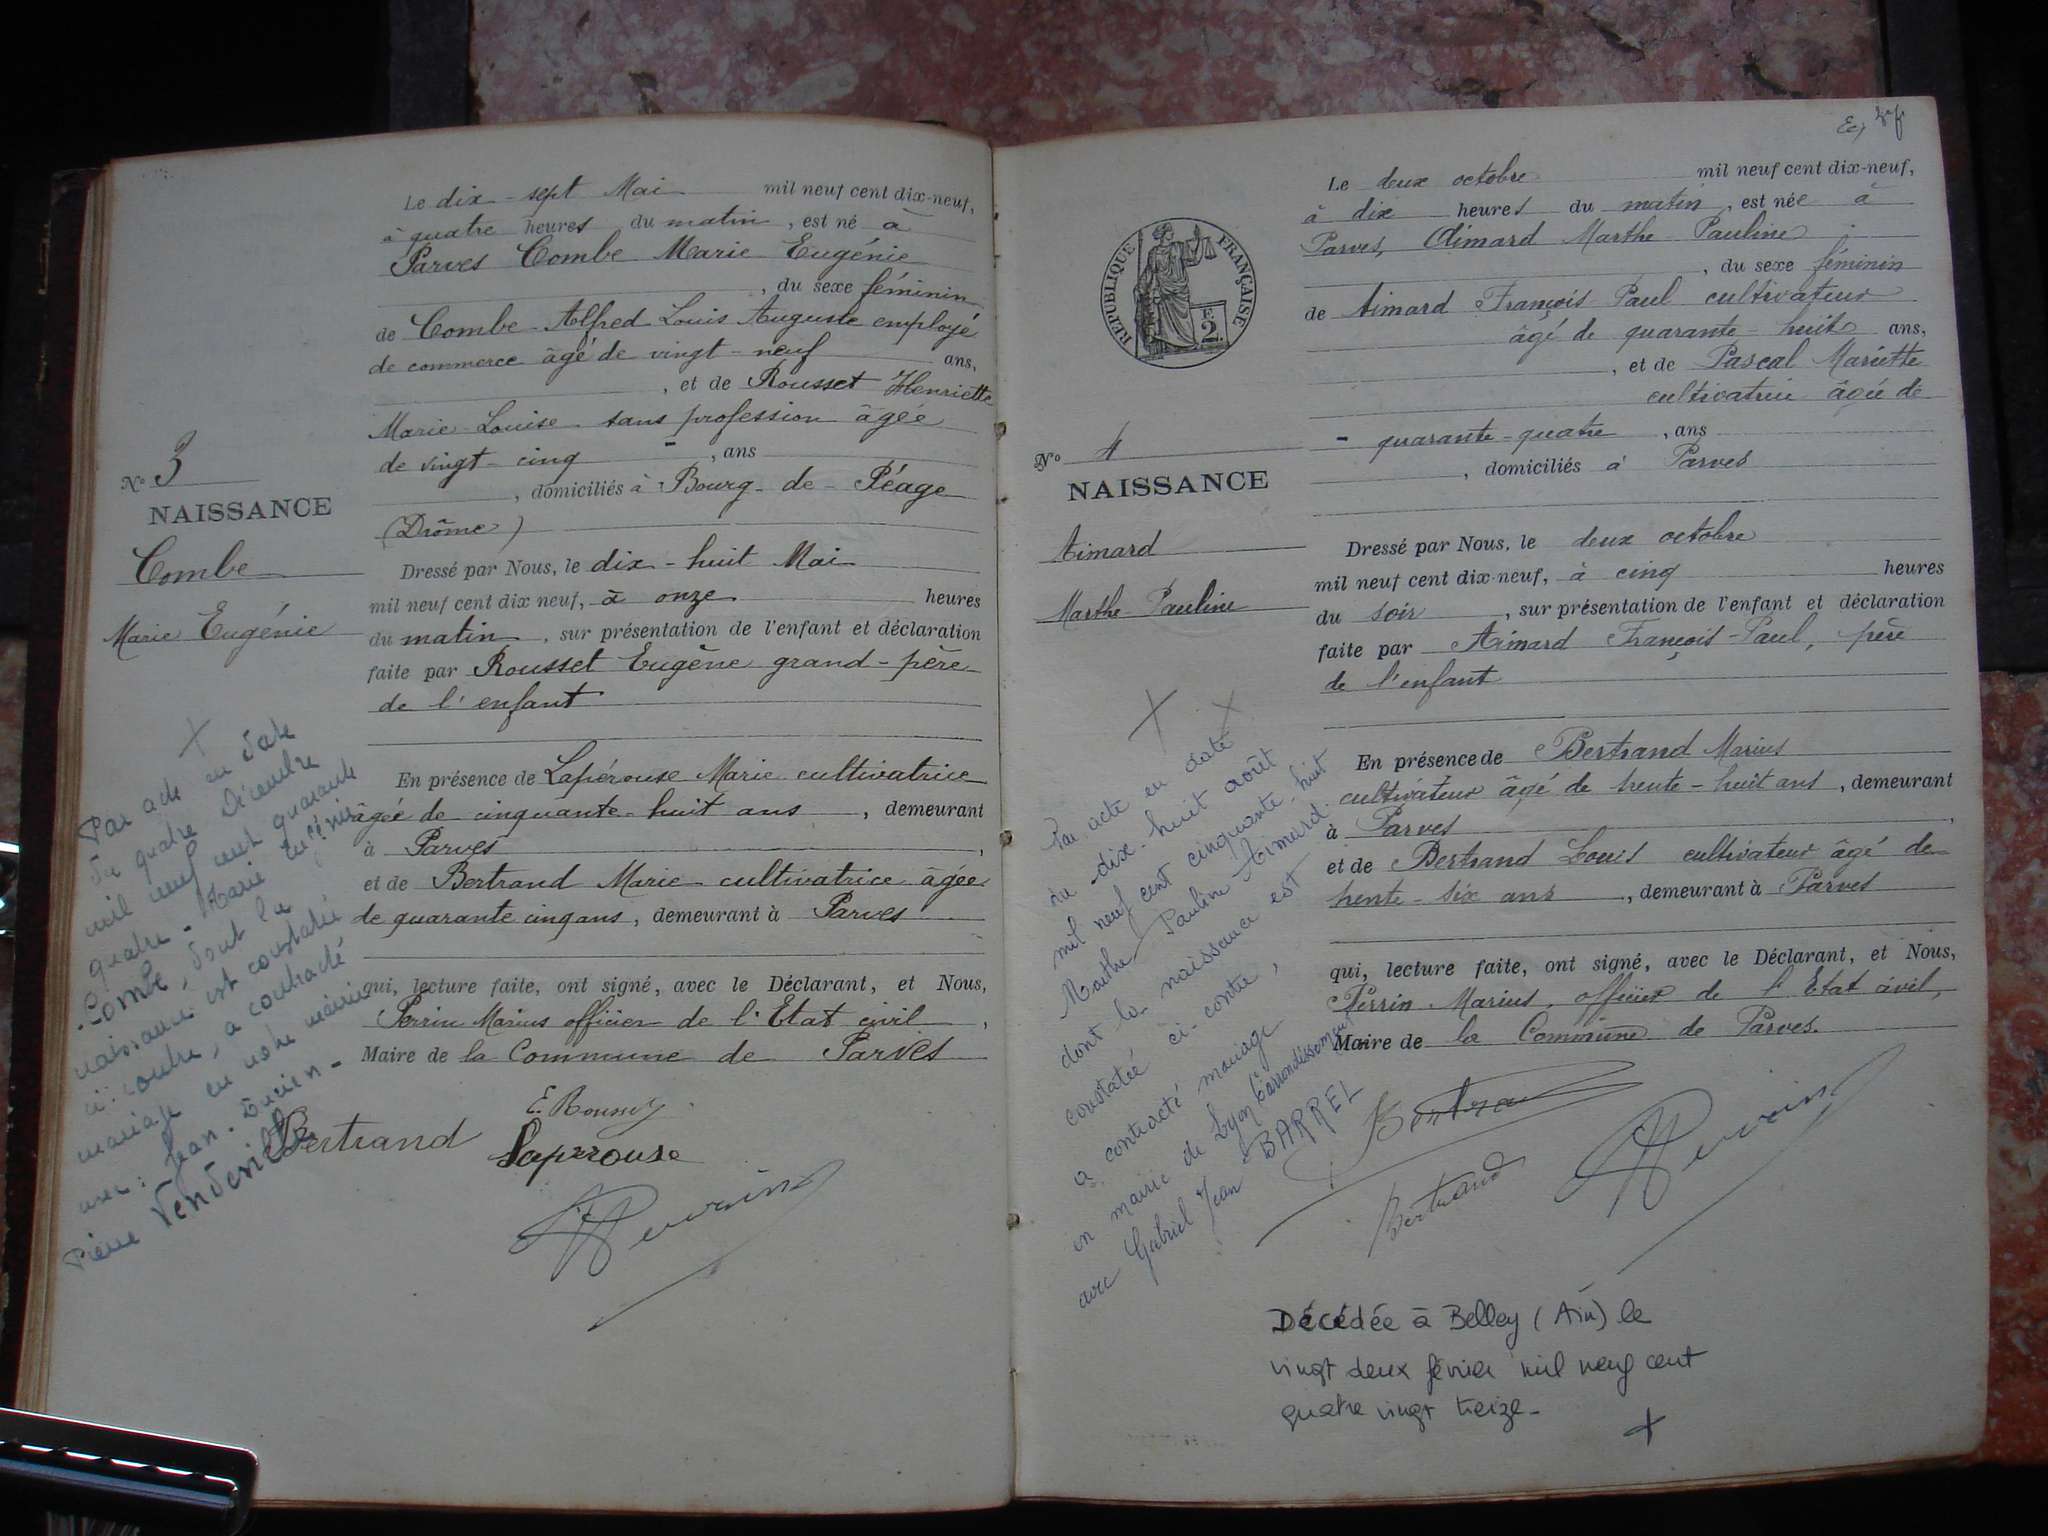 Le dix-sept Mai mil neuf cent dix-neuf,
à quatre heures du matin, est né à
Parves Combe Marie Eugénie
, du sexe féminin
de Combe Alfred Louis Auguste employé
de commerce âgé de vingt-neuf ans,
, et de Rousset Henriette
Marie-Louise sans profession âgée
de vingt-cinq - , ans
, domiciliés à Bourg-de-Péage
(Drôme)
Dressé par Nous, le dix-huit Mai
mil neuf cent dix neuf, à onze heures
du matin, sur présentation de l'enfant et déclaration
faite par Rousset Eugène grand-père
de l'enfant
En présence de Lapérouse Marie cultivatrice
âgée de cinquante-huit ans, demeurant
à Parves,
et de Bertrand Marie cultivatrice âgée
de quarante cinq ans, demeurant à Parves
qui, lecture faite, ont signé, avec le Déclarant, et Nous,
Perrin Marius officier de l'Etat civil,
Maire de la Commune de Parves
E. Rousset
Bertrand Laperouse
Perrin
No 3
NAISSANCE
Combe
Marie Eugénie
Par acte en date
du quatre Décembre
mil neuf cent quarante
quatre - Marie Eugénie
Combe, dont la
naissance est constatée
ci-contre, a contracté
mariage en notre mairie
avec: Jean-Lucien-
Pierre
2
Le deux octobre mil neuf cent dix-neuf,
à dix heures du matin, est née à
Parves, Aimard Marthe Pauline
, du sexe féminin
de Aimard François-Paul cultivateur
âgé de quarante-huit ans,
, et de Pascal Mariette
cultivatrice âgée de
- quarante-quatre, ans
, domiciliés à Parves
Dressé par Nous, le deux octobre
mil neuf cent dix-neuf, à cinq heures
du soir, sur présentation de l'enfant et déclaration
faite par Aimard François-Paul, père
de l'enfant
En présence de Bertrand Marius
cultivateur âgé de trente-huit ans, demeurant
à Parves,
et de Bertrand Louis cultivateur âgé de
trente-six ans, demeurant à Parves
qui, lecture faite, ont signé, avec le Déclarant, et Nous,
Perrin Marius, officier de l'Etat civil,
Maire de la Commune de Parves.
Bertrand
Bertrand
Perrin
RÉPUBLIQUE FRANÇAISE
F. 2.
No 4
NAISSANCE
Aimard
Marthe-Pauline
Par acte en date
du dix-huit août
mil neuf cent cinquante-huit
Marthe Pauline Aimard
dont la naissance est
constatée ci-contre,
a contracté mariage
en mairie de Lyon 6° arrondissement
avec Gabriel Jean BARREL
Décédée à Belley (Ain) le
vingt deux février mil neuf cent
quatre vingt treize-